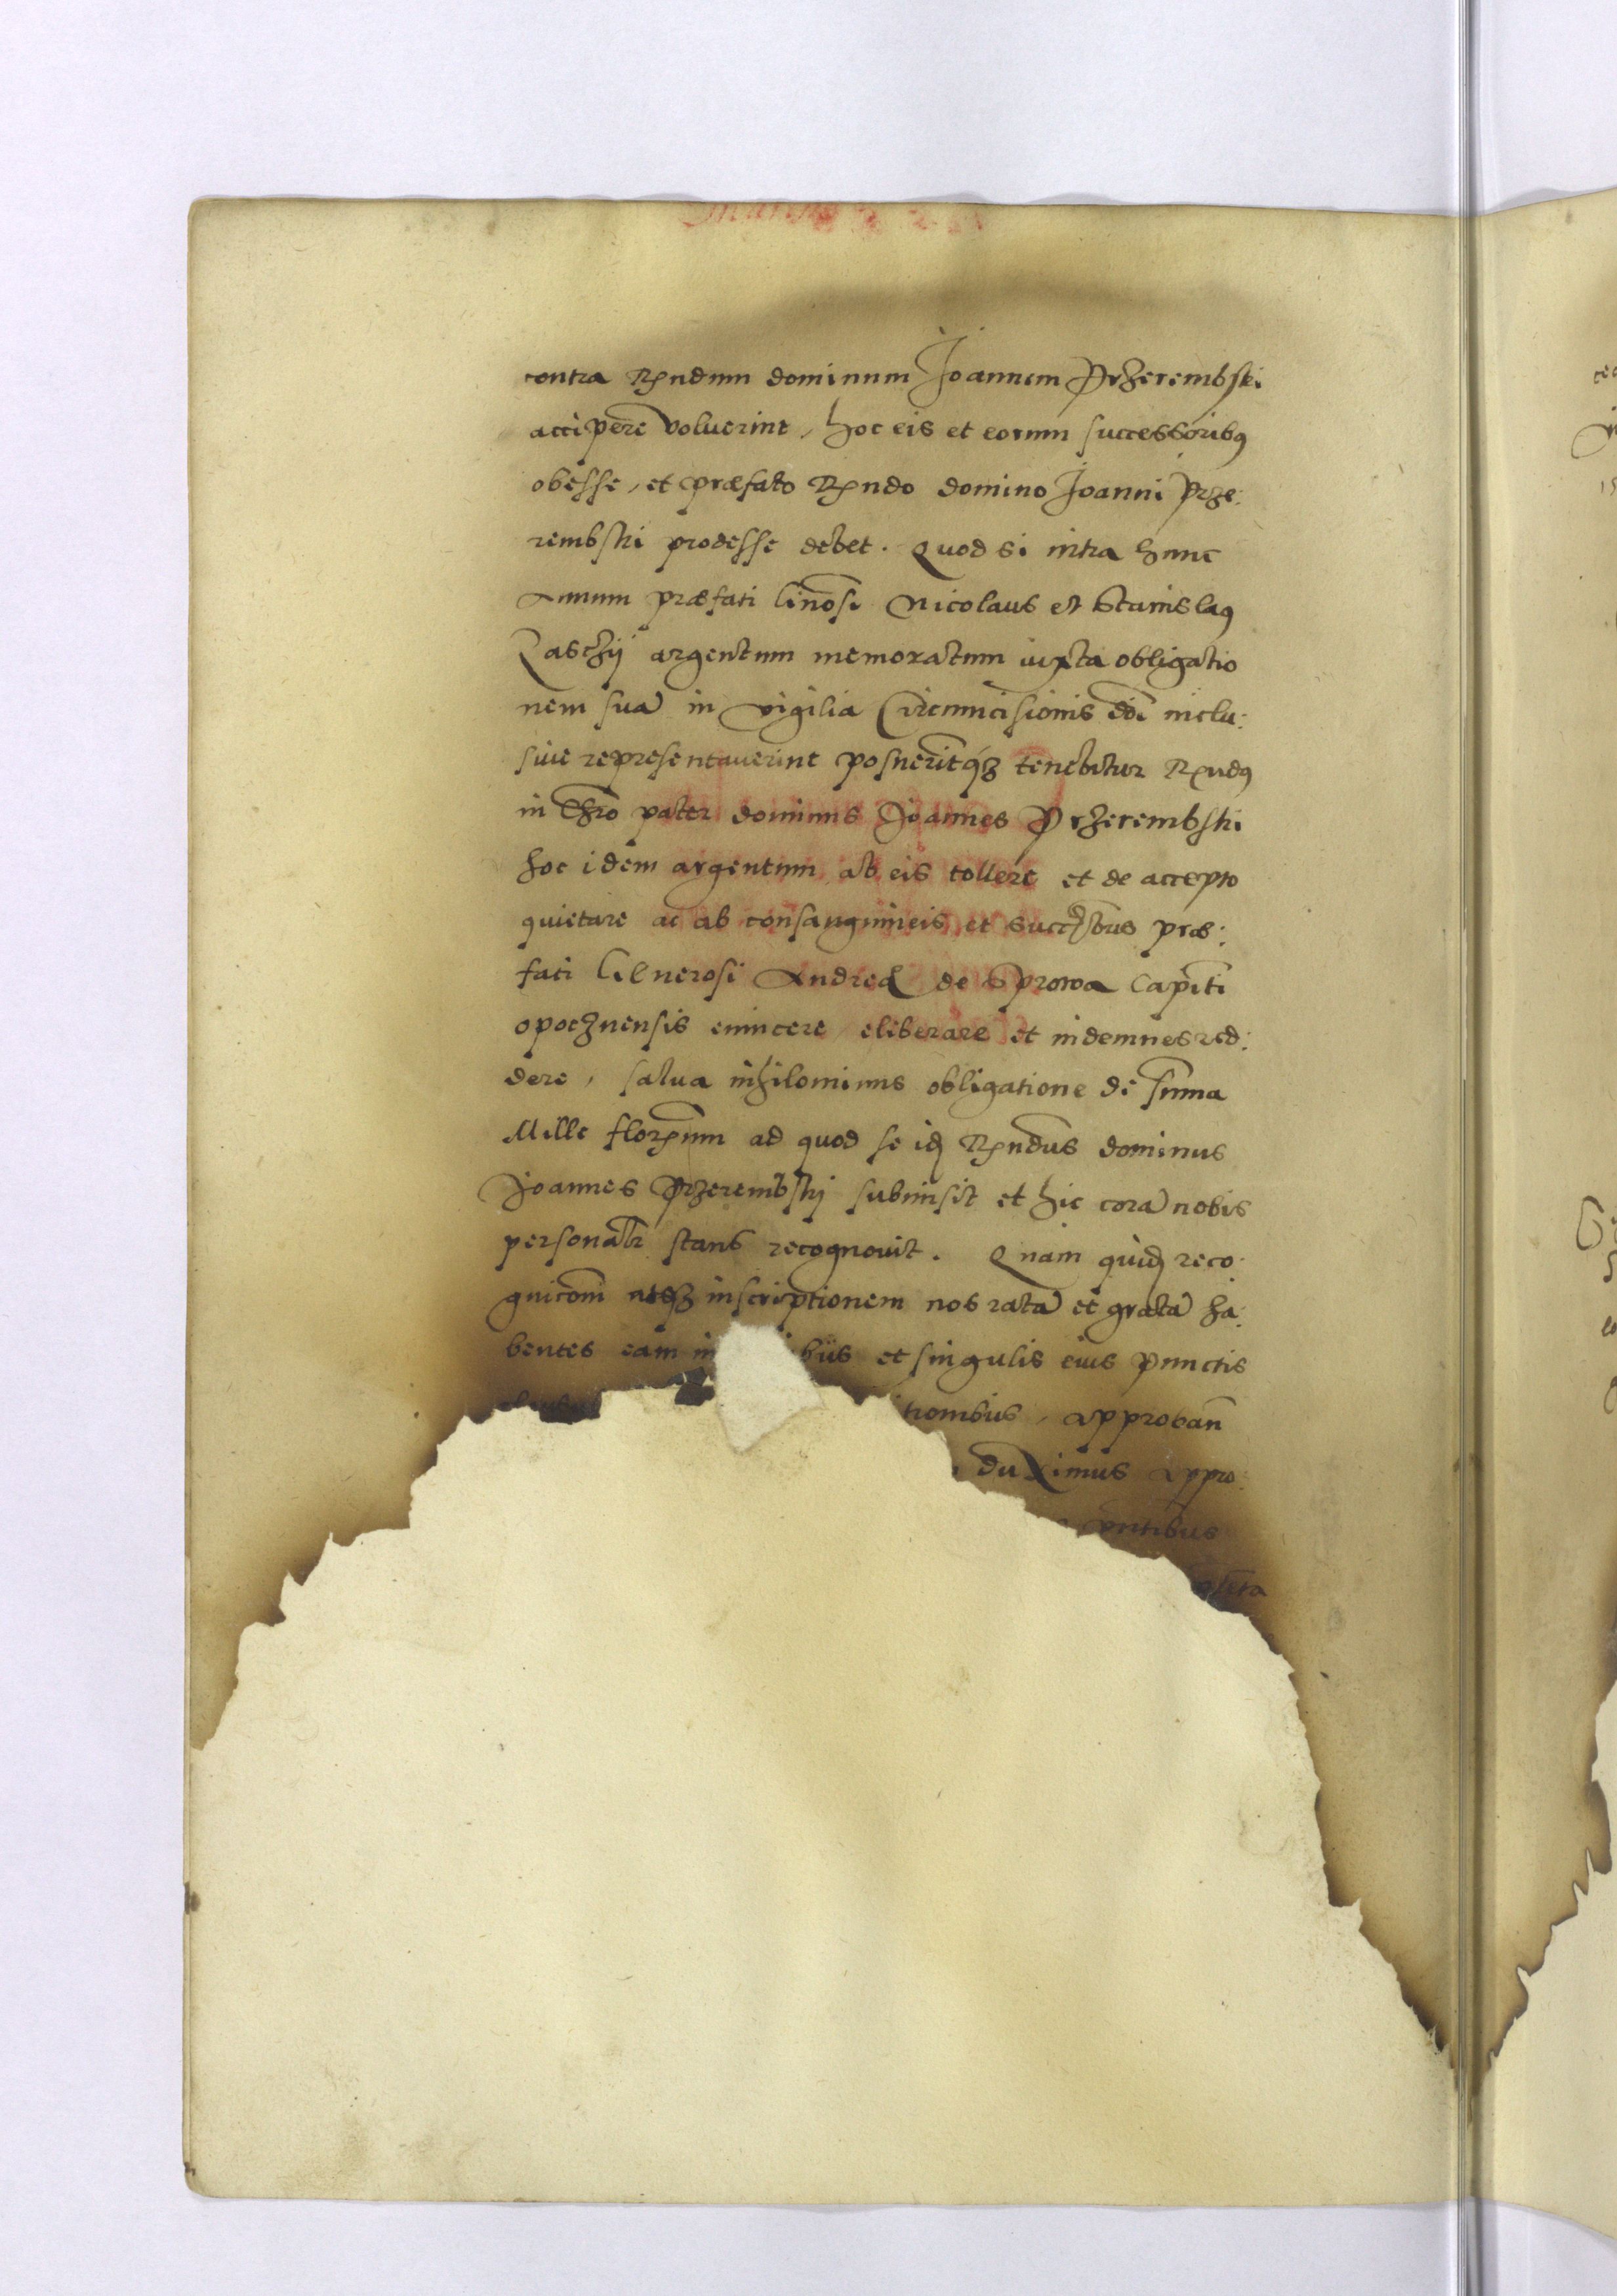 contra Rndum dominum Joannem Przerembski
accipere voluerint, hoc eis et eorum successoribus
obesse, et præfato Rndo domino Joanni Prze:
rembski prodesse debet. Quod si intra hunc
Annum præfati Gnosi Nicolaus et Stanislaus
Lasczÿ argentum memoratum iuxta obligatio
nem suã in vigilia Circumcisionis dni inclu:
siue representauerint posuerintqz tenebitur Rndus
in Chro pater dominus Joannes Przerembski
hoc idem argentum ab eis tollere et de accepto
quietare ac ab consanguineis et succribus præ:
fati Generosi Andreæ de Sprowa Capiti
opocznensis euincere, eliberare et indemnes red:
dere, salua nihilominus obligatione de summa
Mille florenum ad quod se idem Rndus dominus
Joannes Przerembskj submisit et hic corã nobis
personalr stans recognouit. Quam quidem reco:
gnicom atqz inscriptionem nos ratã et gratã ha:
bentes eam in bus et singulis eius punctis
tionibus, approbañ
duximus appro:
pntibus